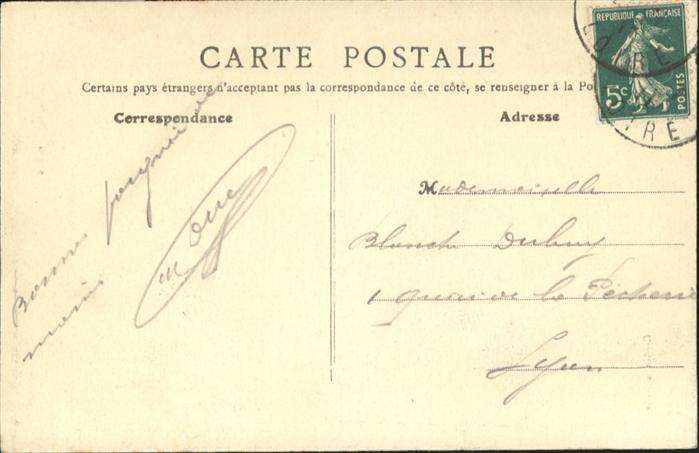 CARTE POSTALE
Certains pays étrangers n'acceptant pas la correspondance de ce côté, se renseigner à la Po
Correspondance
Adresse
REPUBLIQUE FRANÇAISE
5c
POSTES
OIRE
IRE
Bonne poignée de
mains
Mademoiselle
Blanche
1 quai de la Pêcherie
Lyon